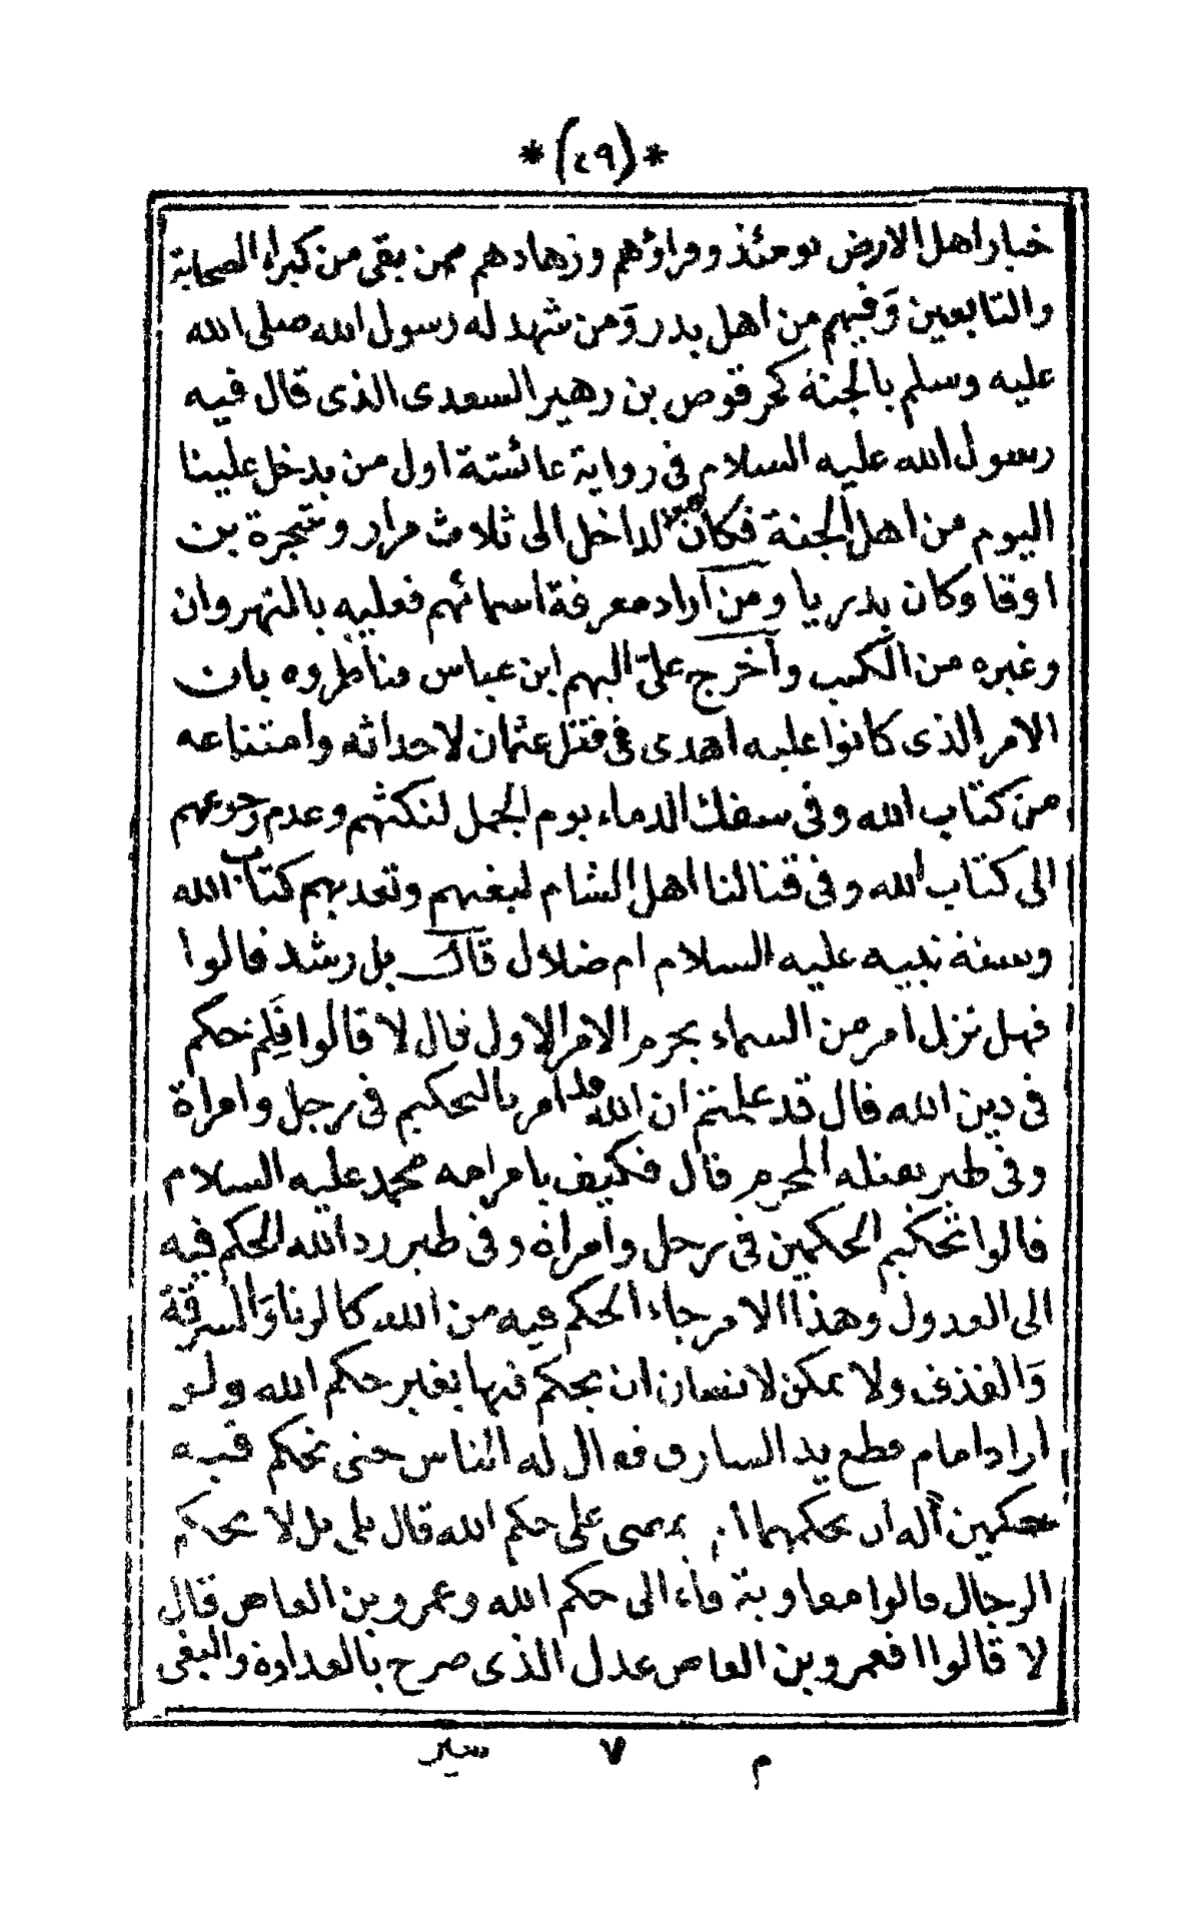 *(٤٩)*
خيار اهل الارض يومئذ وقراؤهم وزهادهم ممن بقي من كبراء الصحابة
والتابعين وَفيهم من اهل بدر وَمن شهد له رسول الله صلى الله
عليه وسلم بالجنة كحرقوص بن زهير السعدى الذى قال فيه
رسول الله عليه السلام فى رواية عائشة اول من يدخل علينا
اليوم من اهل الجنة فكان هو الداخل الى ثلاث مرار وشجرة بن
اوقا وكان بدريا ومن آراد معرفة اسمائهم فعليه بالنهروان
وغيره من الكتب وآخرج علىّ اليهم ابن عباس فناظروه بان
الامر الذى كانوا عليه اهدى فى قتل عثمان لاحداثه وامتناعه
من كتاب الله وفى سفك الدماء يوم الجمل لنكثهم وعدم رجوعهم
الى كتاب الله وفى قتالنا اهل الشام لبغيهم وتعديهم كتاب الله
وسنة نبيه عليه السلام ام ضلال قال بل رشد قالوا
فهل نزل امر من السماء يحرم الامر الاول قال لا قالوا فَلِمَ نحكم
فى دين الله قال قد علمتم ان الله قد امر بالتحكيم فى رجل وامراة
وفى طير يقتله المحرم قال فكيف يا مراحه محمد عليه السلام
قالوا تحكيم الحكمين فى رجل وامراة وفى طير رد الله الحكم فيه
الى العدول وهذا الامر جاء الحكم فيه من الله كالزنا وَالسرقة
وَالقذف ولا يمكن لانسان ان يحكم فيها بغير حكم الله ولو
اراد امام قطع يد السارق فقال له الناس حتى نحكم فيه
حكمين أله ان يحكمهما ام يمضى على حكم الله قال بلى بل لا يحكم
الرجال قالوا معاوية فاء الى حكم الله وعمرو بن العاص قال
لا قالوا افعمرو بن العاص عدل الذى صرح بالعداوة والبغى
م ٧ سير